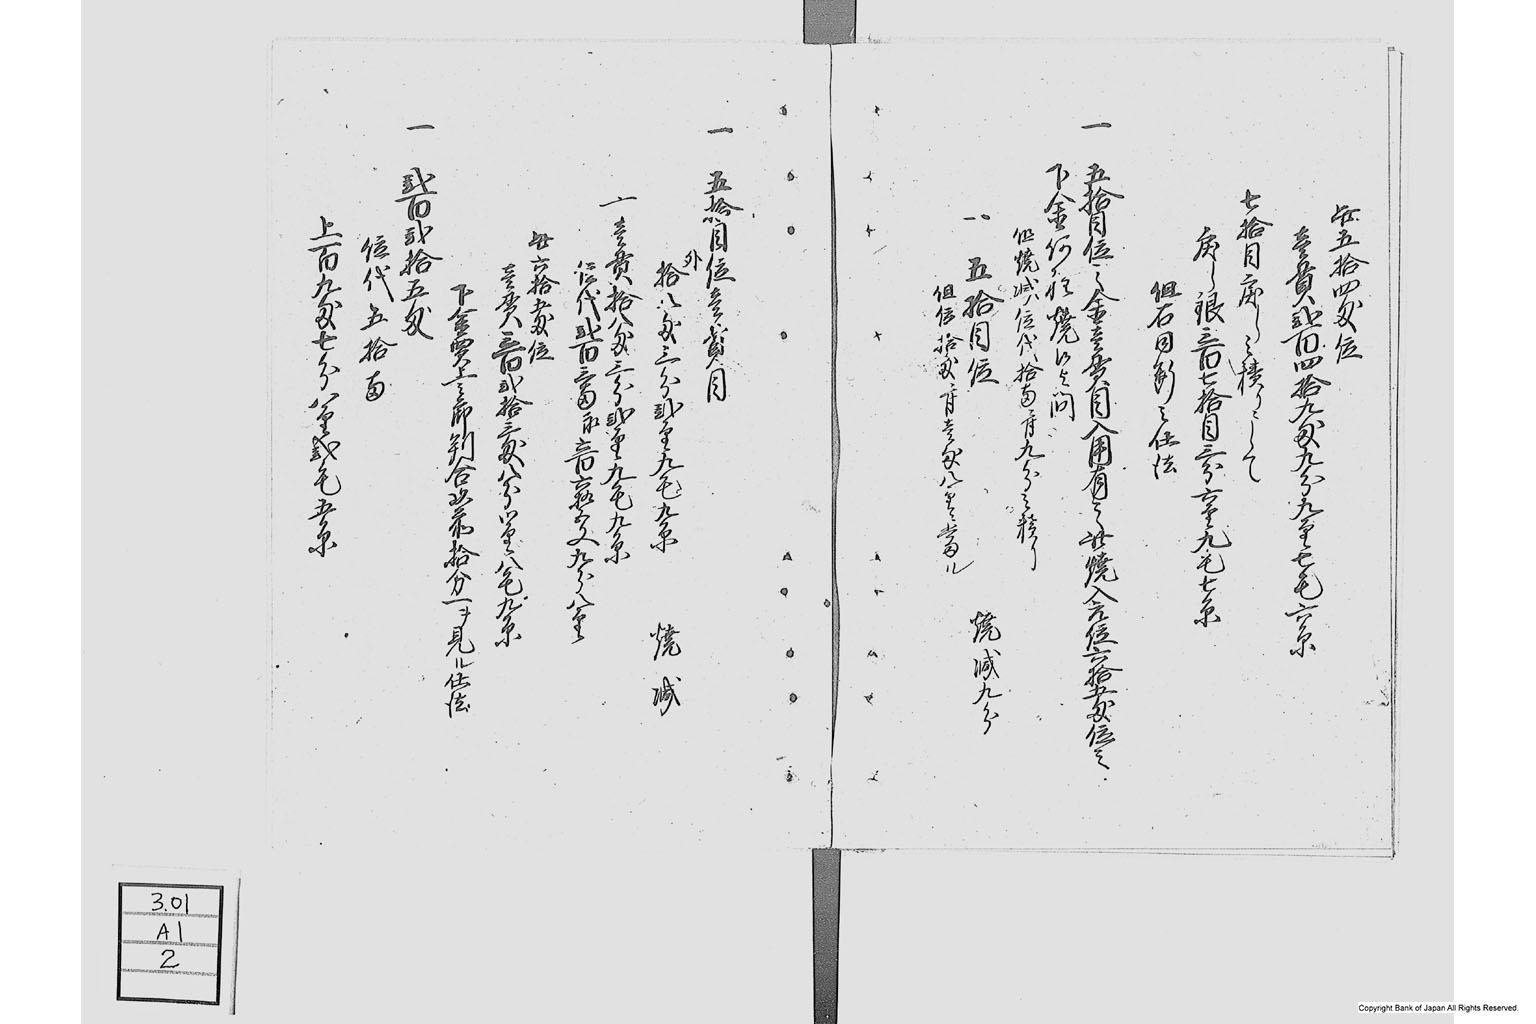 五拾四匁位
壱貫弐百四拾九匁九分九厘七毛六糸
七拾目戻し之積りニして
戻し銀三百七拾目三分六厘九毛七糸
但右同断之仕法
一 五拾目位之金壱貫目入用有之此焼入金位六拾五匁位之
下金何程焼候与問
但焼減ハ位代拾両ニ付九分之積り
一 五拾目位 焼減九分
但位拾匁ニ付壱匁八厘ニ当ル
一 五拾目位壱貫目
外
拾八匁三分弐厘九毛九糸 焼減
一 壱貫拾八匁三分弐厘九毛九糸
位代弐百三両
九分八厘
六拾五匁位
壱貫三百弐拾三匁八分
八毛九糸
下金買上之節割合
拾分一ヲ見ル仕法
一 弐百弐拾五匁
位代五拾両
上百九匁七分八厘弐毛五糸
3.01
A1
2
Copyright Bank of Japan All Rights Reserved.